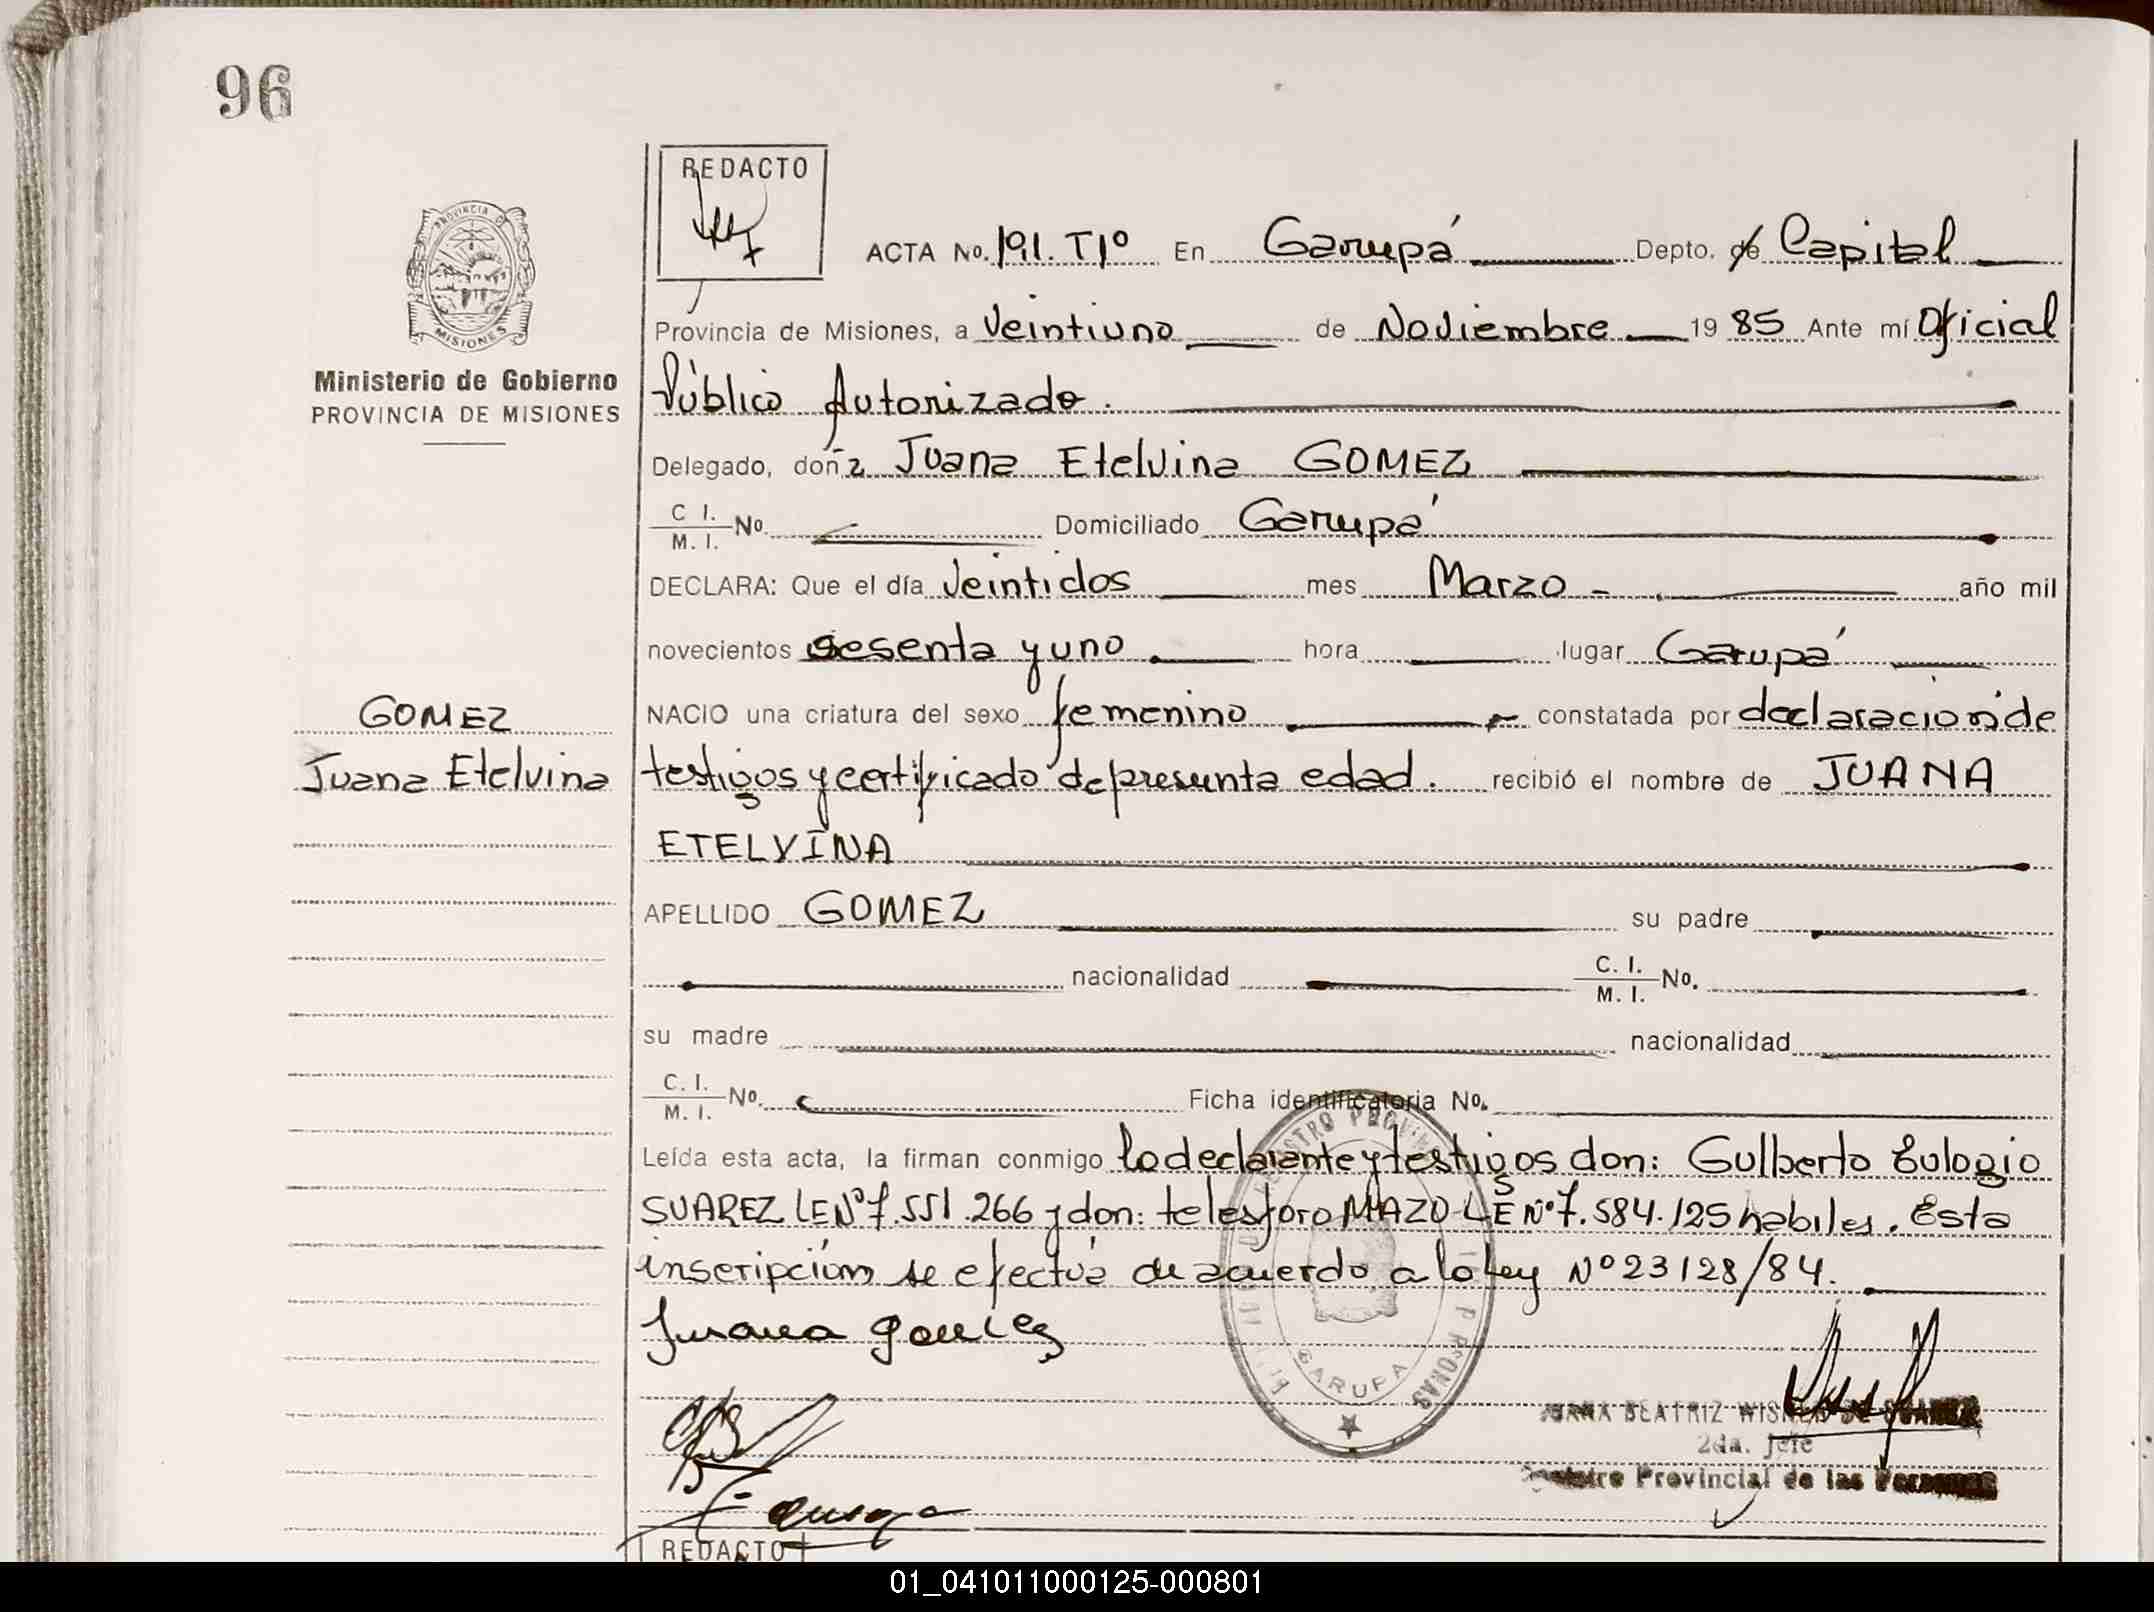 96
REDACTO
ACTA No. 191. T1º En Garupá Depto. de Capital
PROVINCIA DE
MISIONES
Provincia de Misiones, a Veintiuno de Noviembre 19 85 Ante mí Oficial
Ministerio de Gobierno
PROVINCIA DE MISIONES
Público Autorizado.
Delegado, doña Juana Etelvina GOMEZ
C I. M. I. No. Domiciliado Garupá
DECLARA: Que el día Veintidos mes Marzo - año mil
novecientos sesenta y uno hora lugar Garupá
GOMEZ
Juana Etelvina
NACIO una criatura del sexo femenino constatada por declaracion de
testigos y certificado de presunta edad. recibió el nombre de JUANA
ETELVINA
APELLIDO GOMEZ su padre
nacionalidad C. I. M. I. No.
su madre nacionalidad
C. I. M. I. No. Ficha identificatoria No.
Leída esta acta, la firman conmigo la declarante y testigos don: Gulberto Eulogio
SUAREZ LE Nº 7.551.266 y don: telesforo MAZO LE Nº 7.584.125 habiles. Esta
inscripción se efectúa de acuerdo a la Ley Nº 23128/84.
Juana Gomez
GARUPA
JUANA BEATRIZ
2da. Jefe
Registro Provincial de las Personas
REDACTO
01_041011000125-000801